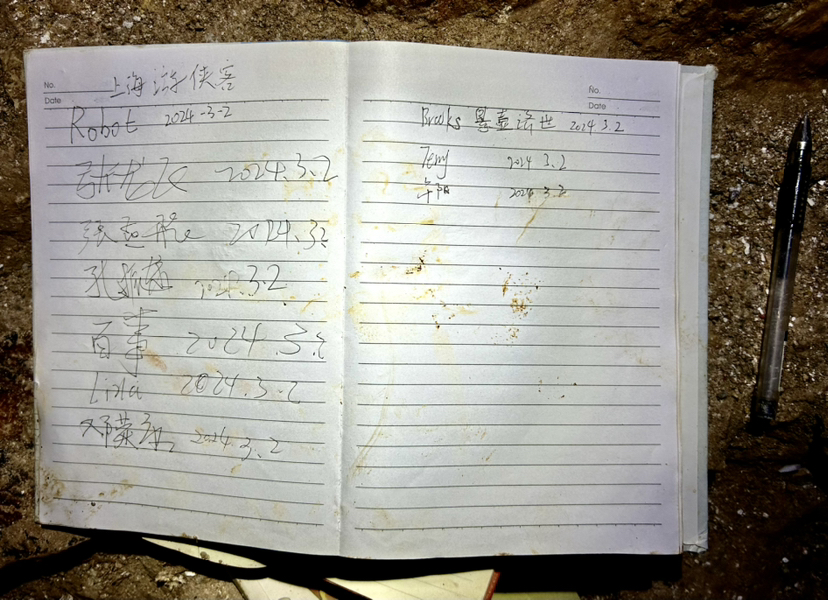 No.
Date
上海游侠客
Robot 2024-3-2
2024.3.2
张 2024.3.2
孔 3.2
百事 2024.3.2
Lina 2024.3.2
邓 2024 3.2
No.
Date
Brooks 悬壶济世 2024 3.2
Terry 2024 3.2
午阳 2024 3.2